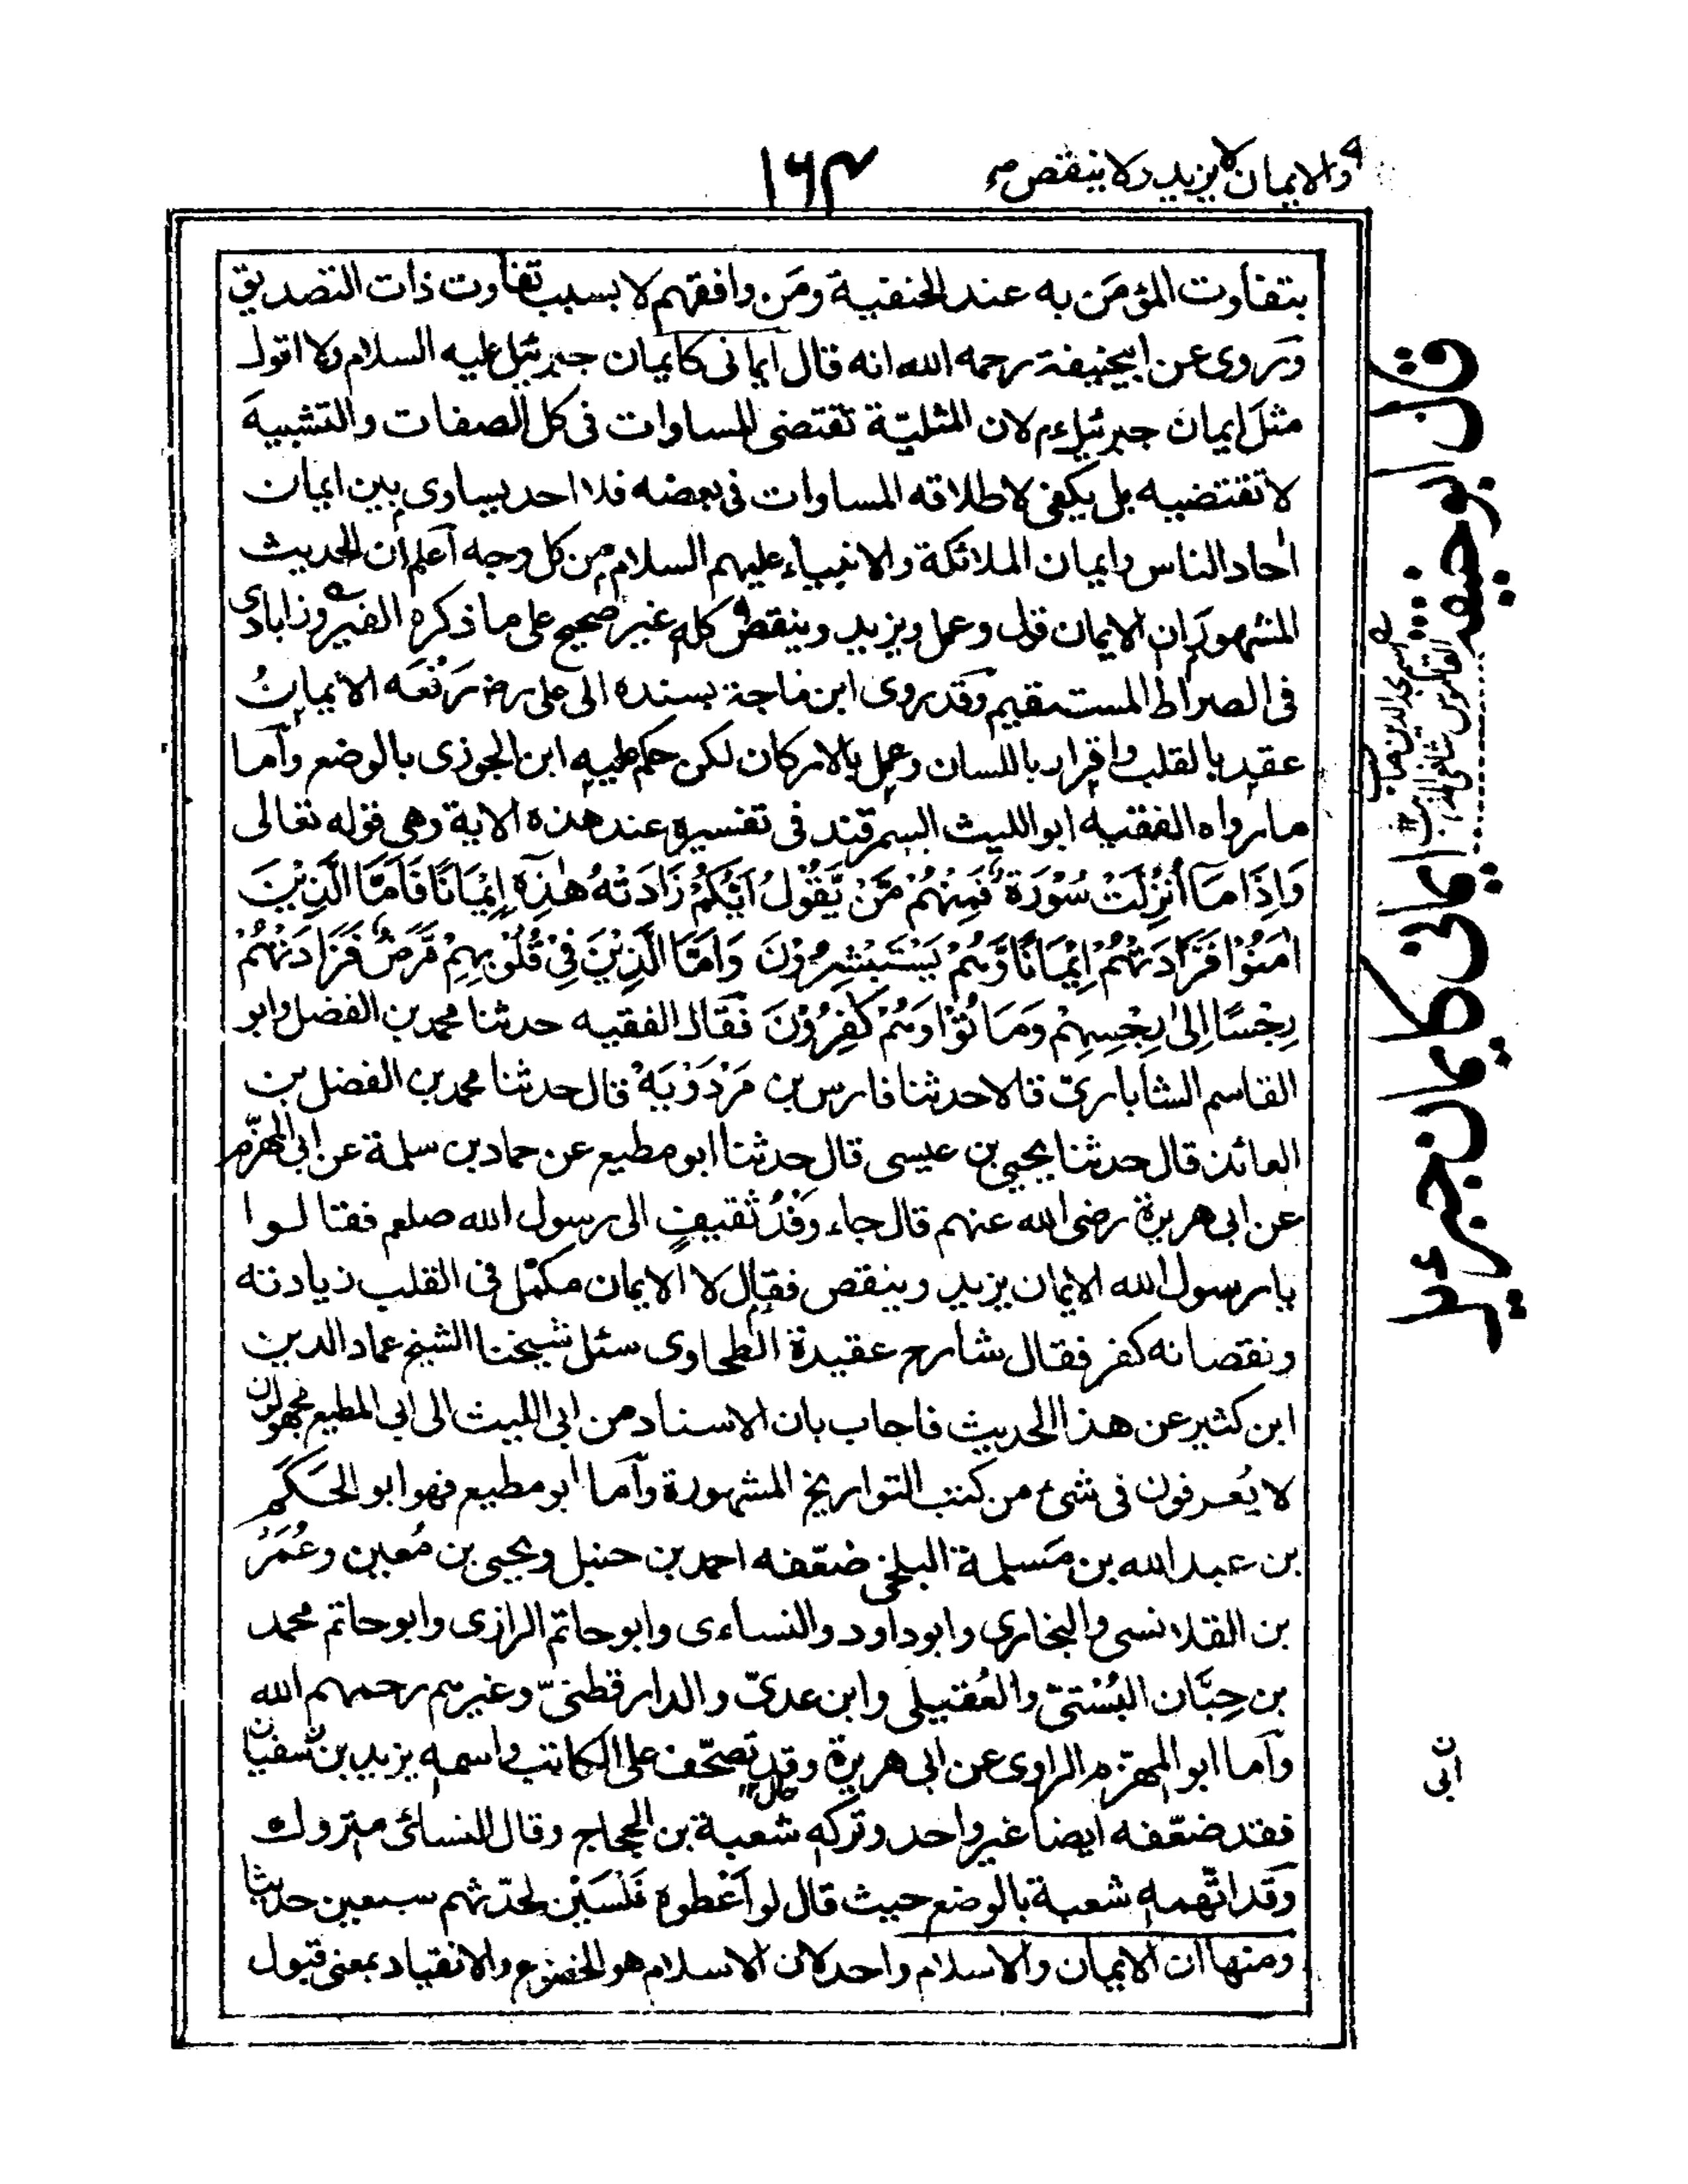 والايمان لا يزيد ولا ينقص
١٦٣
بتفاوت المؤمَن به عند الحنفية ومَن وافقهم لا بسبب تفاوت ذات التصديق
وَيروى عن ابيحنيفة رحمه الله انه قال ايمانى كايمان جبرئيل عليه السلام ولا اقول
مثلَ ايمان جبرئيل لان المثليّة تقتضى المساوات فى كل الصفات والتشبيهَ
لا تقتضيه بل يكفى لاطلاقه المساوات فى بعضه فلا احد يساوى بين ايمان
اٰحاد الناس وايمان الملائكة والانبياء عليهم السلام من كل وجه اَعلم أن الحديث
المشهور ان الايمان قول وعمل ويزيد وينقص كله غير صحيح على ما ذكره الفيروزابادى
فى الصراط المستقيم وَقد روى ابن ماجة بسنده الى على رض رَفعَه الايمانُ
عقد بالقلب واقرار باللسان وعمل بالاركان لكن حكم عليه ابن الجوزى بالوضع وآما
ما رواه الفقيه ابو الليث السمرقند فى تفسيره عند هذه الاية وهى قوله تعالى
وَاِذَا مَآ اُنْزِلَتْ سُوْرَةٌ فَمِنْهُمْ مَّنْ يَّقُوْلُ اَيُّكُمْ زَادَتْهُ هٰذِهٖٓ اِيْمَانًا فَاَمَّا الَّذِيْنَ
اٰمَنُوْا فَزَادَتْهُمْ اِيْمَانًا وَّهُمْ يَسْتَبْشِرُوْنَ وَاَمَّا الَّذِيْنَ فِىْ قُلُوْبِهِمْ مَّرَضٌ فَزَادَتْهُمْ
رِجْسًا اِلىٰ رِجْسِهِمْ وَمَاتُوْا وَهُمْ كٰفِرُوْنَ فَقال الفقيه حدثنا محمد بن الفضل وابو
القاسم الشاباريّ قالا حدثنا فارس بن مَرْدَوَيَهْ قال حدثنا محمد بن الفضل بن
العائذ قال حدثنا يحيى بن عيسى قال حدثنا ابو مطيع عن حماد بن سلمة عن ابى المهزّم
عن ابى هريرة رضى الله عنهم قال جاء وَفْدُ ثقيفٍ الى رسول الله صلعم فقالوا
يا رسول الله الايمان يزيد وينقص فقال لا الايمان مكمّل فى القلب زيادته
ونقصانه كفر فقال شارح عقيدة الطحاوى سئل شيخنا الشيخ عماد الدين
ابن كثير عن هذا الحديث فاجاب بان الاسناد من ابى الليث الى ابى المطيع مجهولون
لا يُعرفون فى شئ من كتب التواريخ المشهورة وآما ابو مطيع فهو ابو الحَكَم
بن عبد الله بن مَسلمة البلخى ضعّفه احمد بن حنبل ويحيى بن مُعين وعُمَرُ
بن القلانسى والبخارى وابو داود والنساءى وابو حاتم الرازى وابو حاتم محمد
بن حِبَّان البُسْتىّ والعُقيلى وابن عدىّ والدارقطنىّ وغيرهم رحمهم الله
وآما ابو المهزّم الراوى عن ابى هريرة وقد تصحّف على الكاتب واسمه يزيد بن سفيان
فقد ضعّفه ايضا غير واحد وتركه شعبة بن الحجاج وقال النسائى متروك
وَقد اتّهمه شعبة بالوضع حيث قال لو اَعْطوه فَلْسَيْن لحدّثهم سبعين حديثا
ومنها ان الايمان والاسلام واحد لان الاسلام هو الخضوع والانقياد بمعنى قبول
قال ابو حنيفه ايمانى كايمان جبرئيل